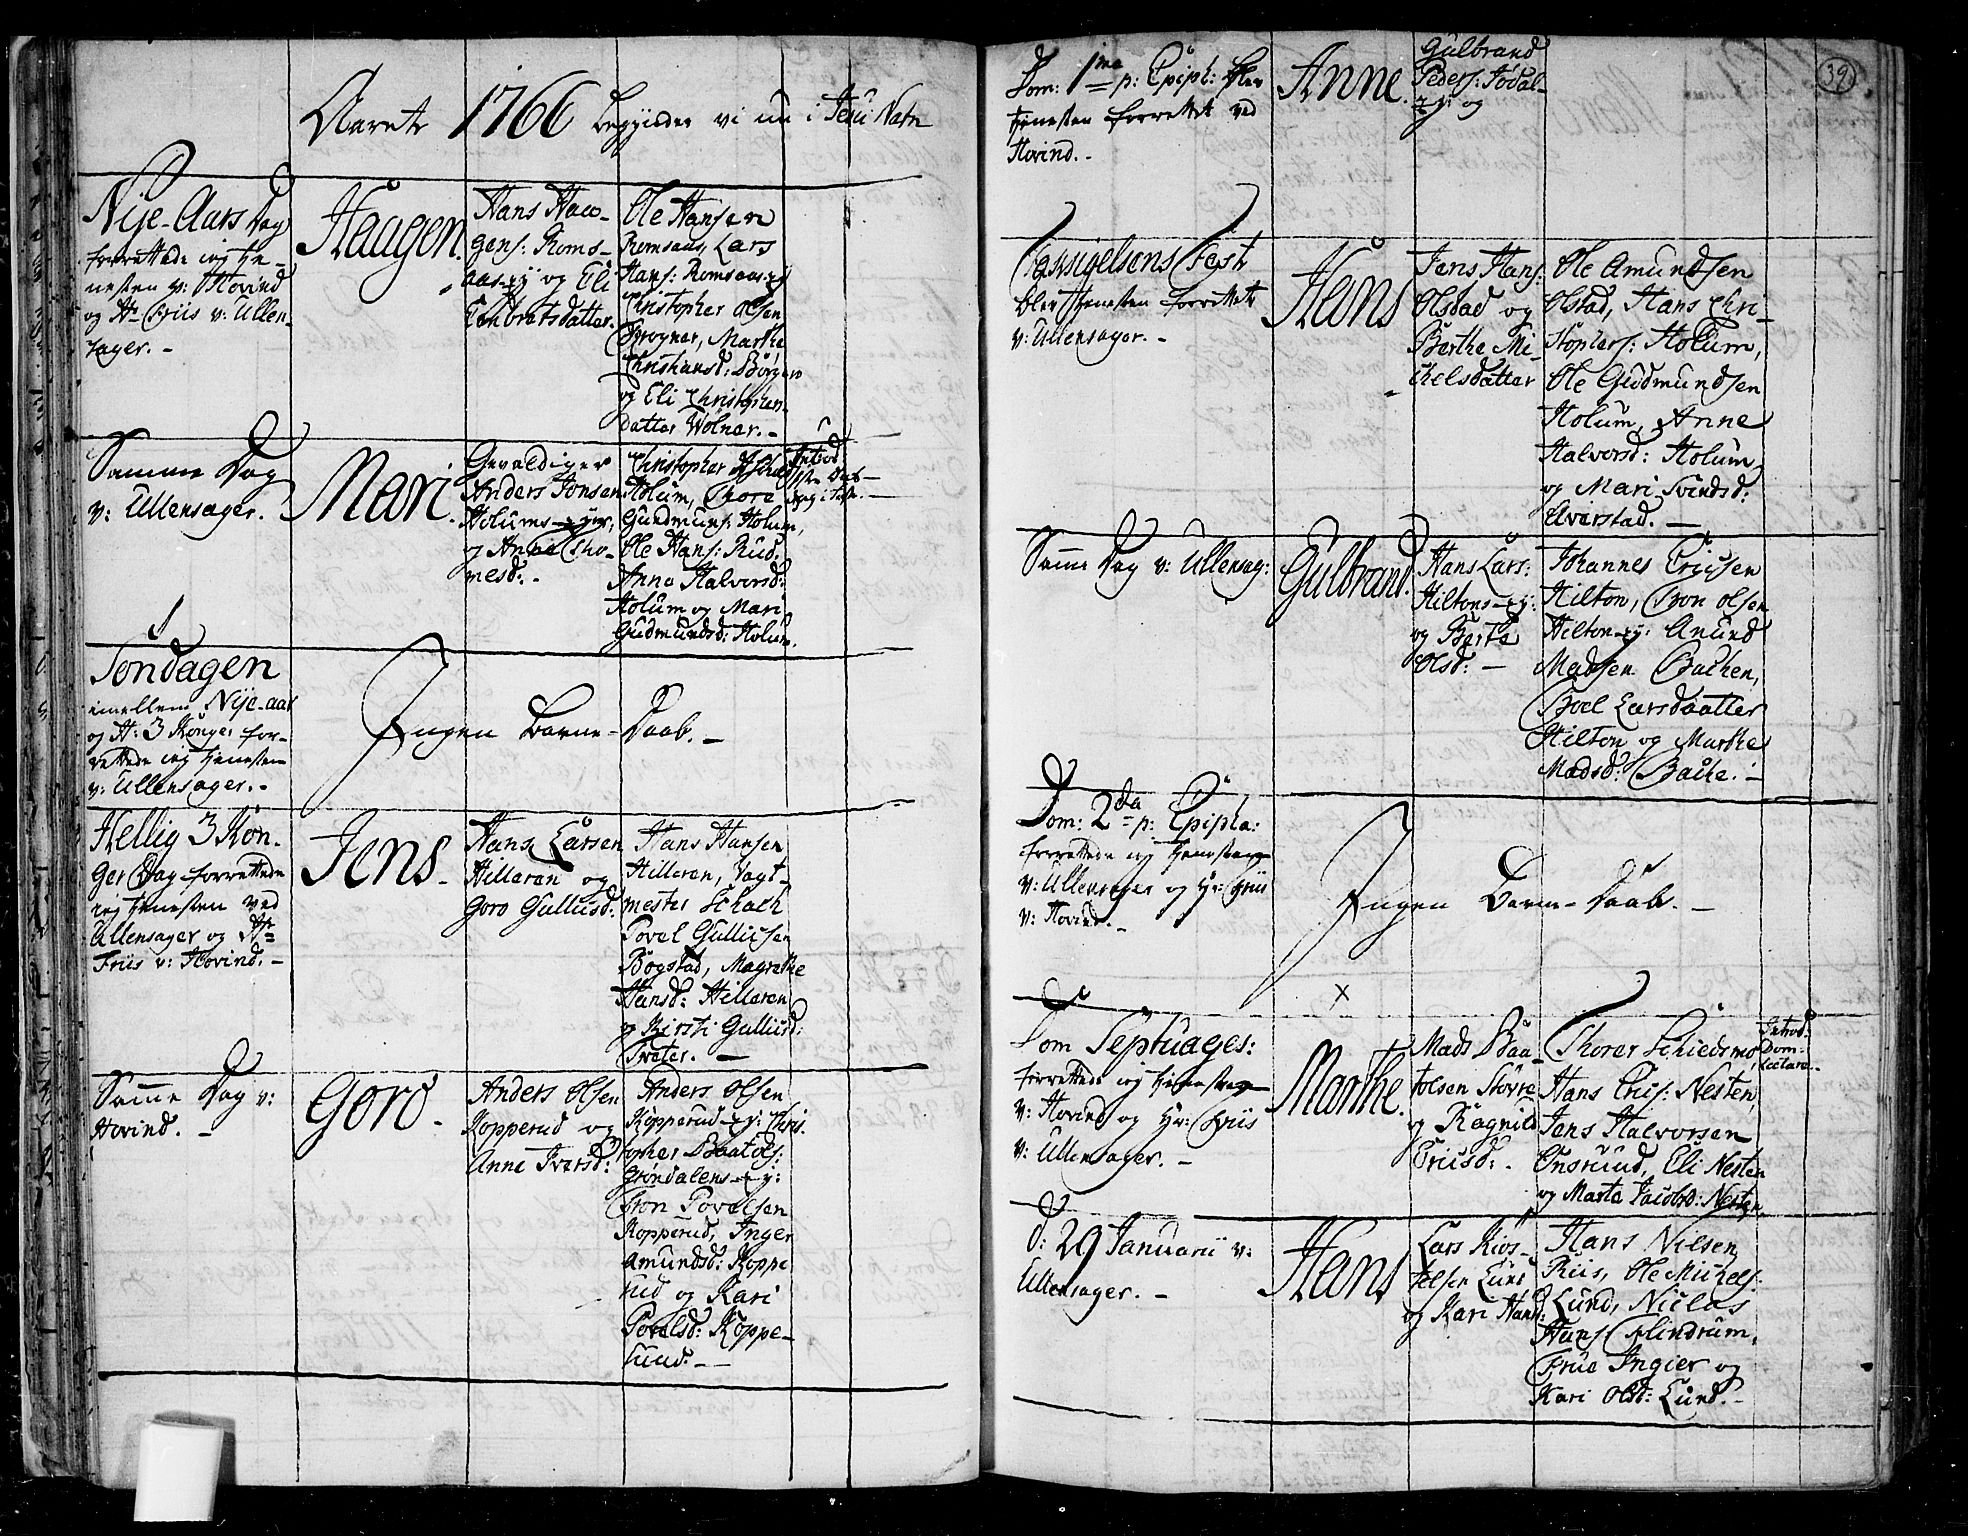 Aaret 1766 begynder vi nu i Jesu Nafn
Nÿe-Aars Dag
forrettede ieg tie-
nesten v: Hovind
og Hr Friis v: Ullen-
sager. -
Haagen.
Hans Haa-
gens: Roms-
aas-ey og Eli
Engbretsdatter.
Ole Hansen
Romsaas, Lars
Hans: Romsaas-ey
Christopher Olsen
Frogner, Marthe
Christiansd: Børgen
og Eli Christophers-
datter Wølner. -
Samme Dag
v: Ullensager.
Mari.
Gevaldiger
Anders Jonsen
Holums-eyer,
og Anne Tho-
mesd: -
Christopher
Holum, Thore
Gundmuns: Holum,
Ole Hans: Rud.
Anne Halvorsd:
Holum og Mari
Gudmundsd: Holum.
Introd:
Søndagen
imellem Nÿe-aar
og H: 3 Konger for-
rettede ieg tienesten
v: Ullensager. -
Ingen Barne-Daab. -
Hellig 3 Kon-
ger Dag forrettede
ieg tienesten ved
Ullensager og Hr
Friis v: Hovind. -
Jens.
Hans Larsen
Hilleren og
Goro Gulliusd:
Hans Hansen
Hilleren, Vagt-
mester Schach
Povel Gullisen
Bogstad, Magrethe
Hansd: Hilleren
og Kirsti Gulliusd:
Tveter. -
Samme Dag v:
Hovind. -
Goro.
Anders Olsen
Kopperud og
Anne Iversd:
Anders Olsen
Kopperud-ey: Chris-
topher Baatols:
Grøndalens-ey:
Tron Povelsen
Kopperud, Inger
Amundsd: Koppe
rud og Kari
Povelsd: Koppe-
rund. -
39
Dom: 1me p: Epiph: blev
tienesten forrettet ved
Hovind. -
Anne.
Gulbrand
Peders: Jødal-
ey: og
Tacksigelsens Fest
blev tienesten forrettet
v: Ullensager. -
Hans
Jens Hans:
Olstad og
Berthe Mi-
chelsdatter
Ole Amundsen
Olstad, Hans Chri-
stophers: Holum,
Ole Gudmundsen
Holum, Anne
Halvorsd: Holum
og Mari Svendsd:
Elverstad. -
Samme Dag v: Ullensag:
Gulbrand.
Hans Lars:
Hiltons-ey:
og Berte
Olsd: -
Johannes Ericsen
Hilton, Bon Olsen
Hilton-ey: Anund
Madsen Bachen,
Boel Larsdaatter
Hilton og Marthe
Madsd: Bache. -
Dom: 2da p: Epipha:
forrettede ieg tienesten
v: Ullensager og Hr: Friis
v: Hovind. -
Ingen Barne-Daab. -
x
Dom Septuages:
forrettede ieg tienesten
v: Hovind og Hr: Friis
v: Ullensager. -
Marthe.
Mads Baa-
tolsen Støvre
og Ragnild
Ericsd: -
Thorer Schiedsmo
Hans Eric: Nesten,
Jens Halvorsen
Onsruud, Eli Nesten
og Marte Jacobsd: Nesten.
Introd:
Dom:
Lætare. -
d: 29 Januarii v:
Ullensager. -
Hans
Lars Kios-
telsen Lund
og Kari Hansd:
Hans Nilsen
Riis, Ole Michels:
Lund, Niclas
Hans: Flindrum,
Frue Ingier og
Kari Olsd: Lund. -